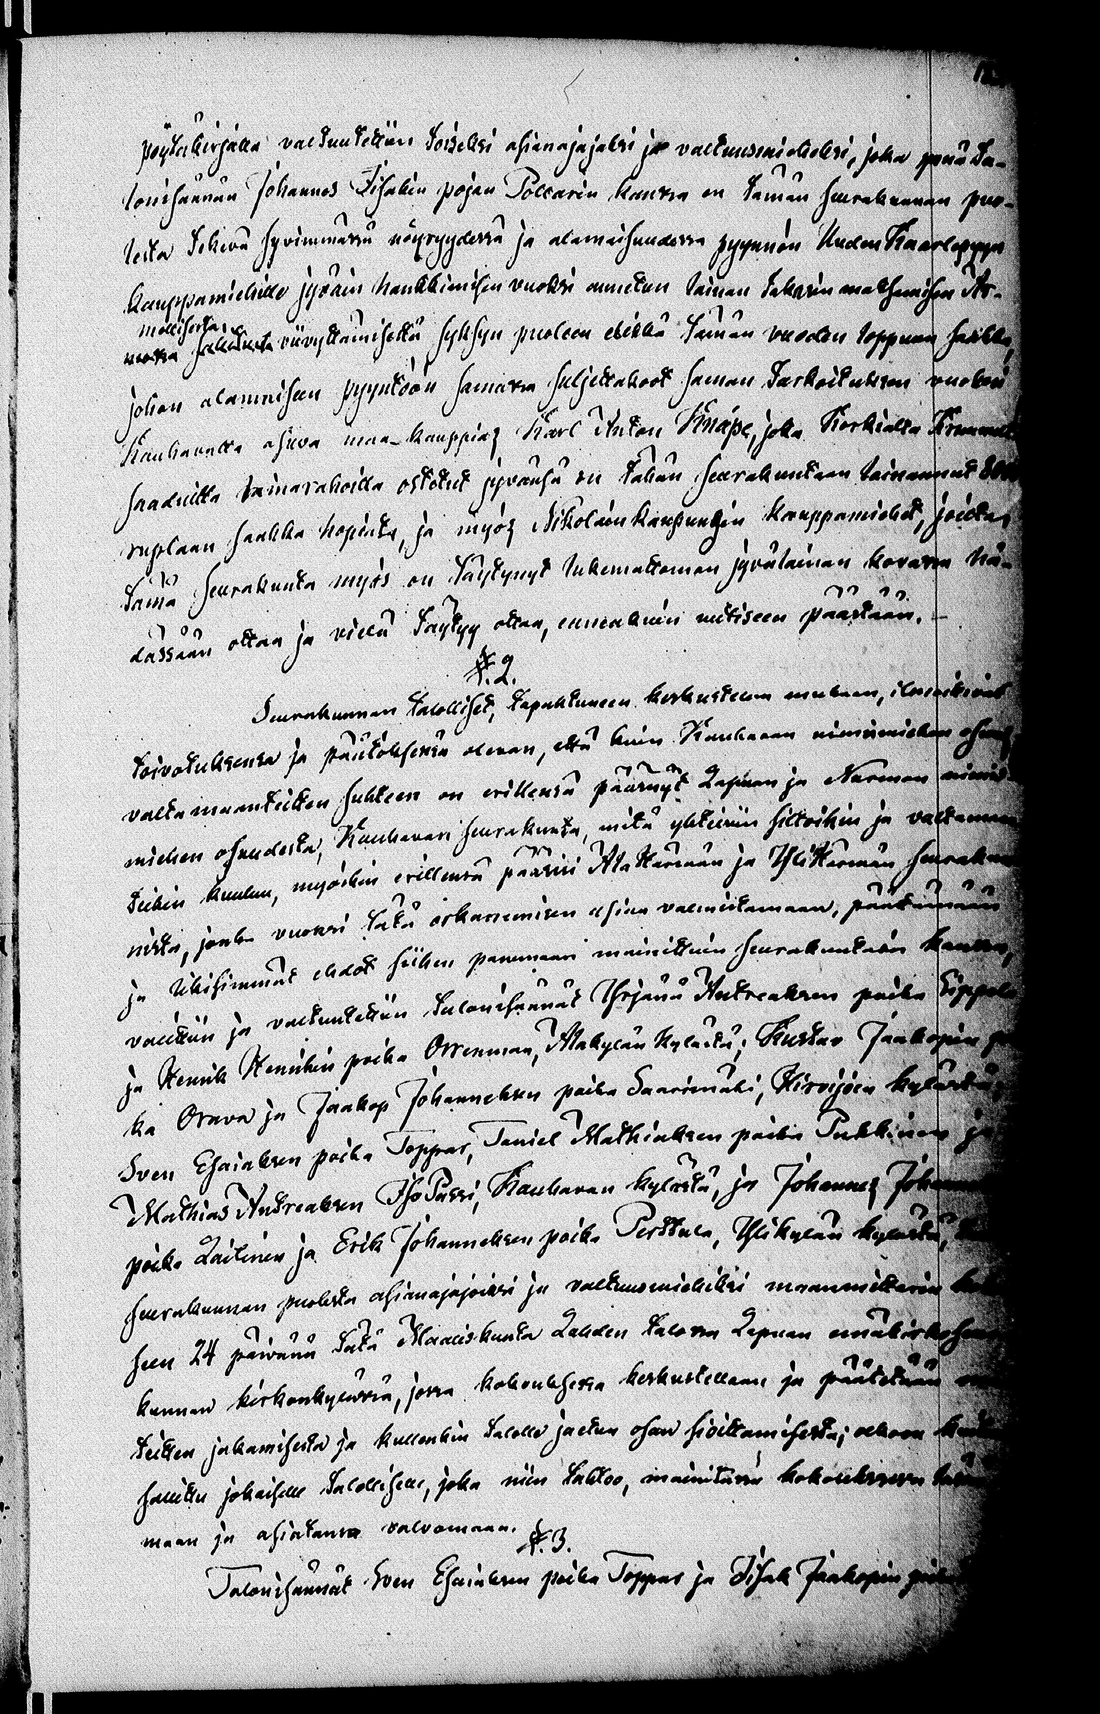 pöytäkirjalla valtuutettiin toiseksi asianajajaksi ja valtuusmieheksi, joka ynnä ta-
lonisännän Johannes Iisakin pojan Pollarin kanssa on tämän seurakunnan puo-
lesta tekevä syvimmässä nöyryydessä ja alamaisuudessa pyynnön Uuden Kaarlepyyn
kauppamiehille jyväin hankkimisen vuoksi annetun lainan takasin maksamisen Ar-
mollisesta
viivyttämisestä syksyn puoleen eli tämän vuoden loppuun saakka,
johon alamaiseen pyyntöön samassa suljettakoot saman tarkoituksen vuoksi
Kauhavalla asuva maa-kauppias Karl Anton Knape, joka Korkialta Kruunulta
saaduilla lainarahoilla ostetut jyvänsä on tähän seurakuntaan lainannut
ruplaan saakka hopiata, ja myös Nikolainkaupungin kauppamiehet, joilta
tämä seurakunta myös on täytynyt lukemattoman jyvälainan kovassa hä-
dässään ottaa ja vielä täytyy ottaa, ennenkuin uutiseen päästään.
§. 2.
Seurakunnan talolliset, tapahtuneen keskustelun mukaan, ilmoittivat
toivotuksensa ja päätöksensä olevan, että kuin Kauhavan nimismiehen osuus
valtamaanteitten suhteen on erillensä päässyt Lapuan ja Nurmon nimis-
miehen osuudesta, Kauhavan seurakunta, mitä yhteisiin siltoihin ja valtamaan
teihin kuuluu, myöskin erillensä pääsisi AlaHärmän ja YliHärmän seurakun
nista, jonka vuoksi tätä erkanemisen asiaa valmistamaan, päättämään
ja likisimmät ehdot siihen panemaan mainittuin seurakuntain kanssa,
valittiin ja valtuutettiin talonisännät Yrjänä Antreaksen poika Sippola
ja Henrik Henrikin poika Orrenmaa, Alakylän kylästä; Kustav Jaakopin poi
ka Orava ja Jaakop Johanneksen poika Saarimäki, Hirvijoen kylästä;
Sven Esaiaksen poika Toppar, Taniel Mathiaksen poika Pukkinen ja
Mathias Antreaksen IsoPassi, Kauhavan kylästä, ja Johannes Johannek
poika Laitinen ja Erik Johanneksen poika Perttula, Ylikylän kylästä,
seurakunnan puolesta asianajajoiksi ja valtuusmiehiksi maanmittarin
seen 24 päivänä tätä Maaliskuuta Lahden talossa Lapuan emäkirkkoseura
kunnan kirkonkylässä, jossa kokouksessa keskustellaan ja päätetään
teitten jakamisesta ja kullenkin talolle jaetun osan sioittamisesta; olkoon
sallittu jokaiselle talolliselle, joka niin tahtoo, mainitussa kokouksessa
maan ja asiatansa valvomaan.
§. 3.
Talonisännät Sven Esaiaksen poika Toppar ja Iisak Jaakopin poika